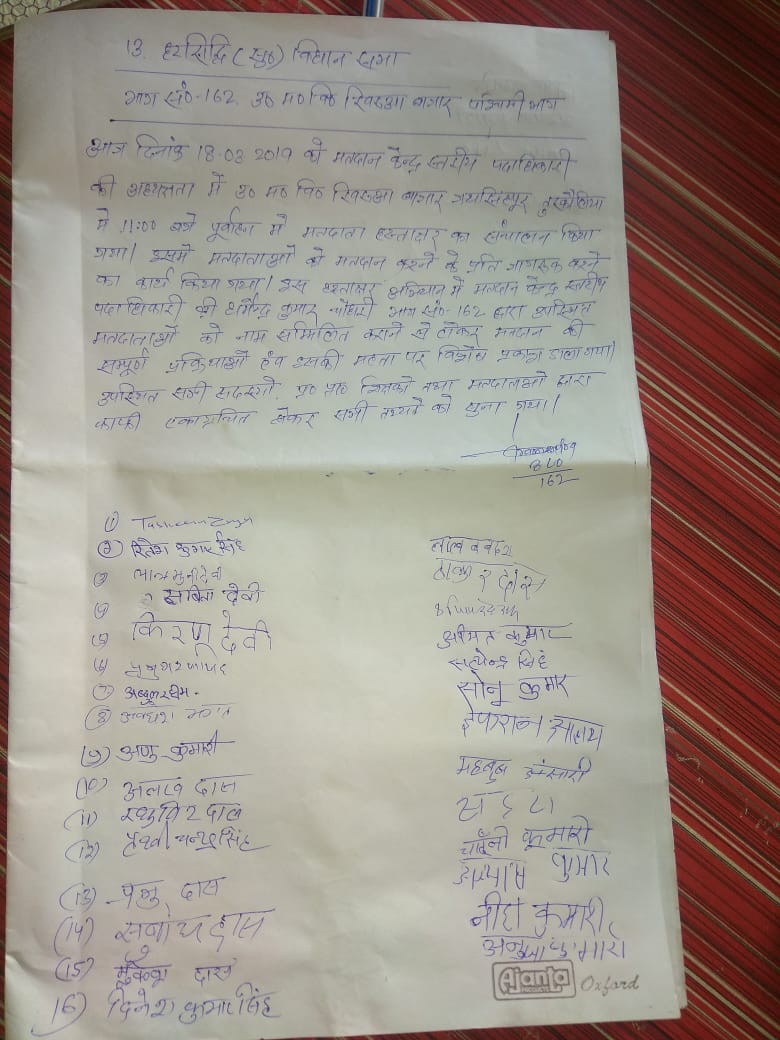 13. हरसिद्धि (सु०) विधान सभा
भाग सं०-162. उ० म० वि० खिरुआ बाजार पश्चिमी भाग
आज दिनांक 18.03.2019 को मतदान केन्द्र स्तरीय पदाधिकारी
की अध्यक्षता में उ० म० वि० खिरुआ बाजार जयसिंहपुर तुरकौलिया
में 11:00 बजे पूर्वाह्न में मतदाता हस्ताक्षर का संचालन किया
गया। इसमें मतदाताओं को मतदान करने के प्रति जागरूक करने
का कार्य किया गया। इस हस्ताक्षर अभियान में मतदान केन्द्र स्तरीय
पदाधिकारी श्री धर्मेन्द्र कुमार चौधरी भाग सं०-162 द्वारा उपस्थित
मतदाताओं को नाम सम्मिलित कराने से लेकर मतदान की
सम्पूर्ण प्रक्रियाओं एंव इसकी महता पर विशेष प्रकाश डाला गया।
उपस्थित सभी सदस्यो, प्र० प्रा० शिक्षको तथा मतदाताओ द्वारा
काफी एकाग्रचित होकर सभी तथ्यों को सुना गया।
BLO
162
(1)
(2) रितेश कुमार सिंह
(3) मुनी देवी
(4) सबिता देवी
(5) किरण देवी
(6)
(7) अब्दुल रहीम.
(8) अवधेश
(9) अणु कुमारी
(10) अलख दास
(11) रघुविर दास
(12) चन्द्र सिंह
(13) प्रभु दास
(14) दास
(15) मुकेश दास
16) दिनेश कुमार सिंह
दास
अमित कुमार
सत्येन्द्र सिंह
सोनू कुमार
आलम
महबुब अंसारी
चाँदनी कुमारी
कुमार
नीहा कुमारी
कुमारी
Ajanta
Oxford